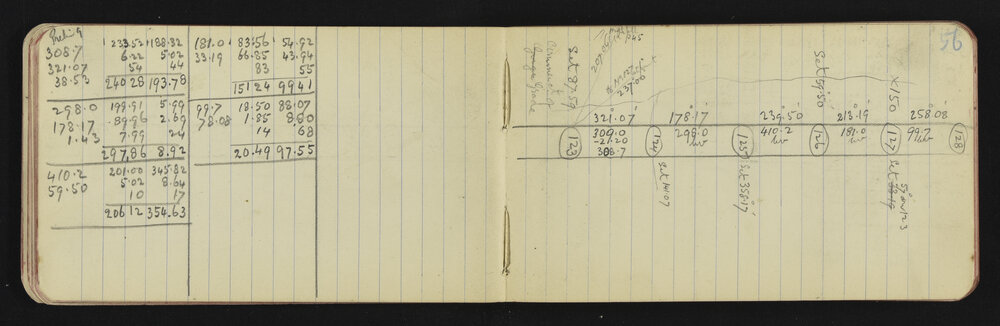 308.7 1233.52 1188.82
6.22 5.02
321.07 54 44
38.53 240 28 193.78
298.0 199.91 5.99
178.17 .89.96 2.69
1.43 7.99 24
297,86 8.92
410.2 201.00 345.82
59.50 5.02 8.64
10 17
206 12 354.63
181.0 83.56 54.92
33.19 66.85 43.94
83 55
151 24 99 41
99.7 18.50 88.07
78.08 1.85 8.80
14 68
20.49 97.55
56
Set 87.53
237.00
Set 59.50
X 150
321.07 178.17 239.50 213.19 258.08
123 309.0 124 298.0 125 410.2 126 181.0 127 99.7 128
-21.20
308.7
Set 141.07
Set 358.17
Set